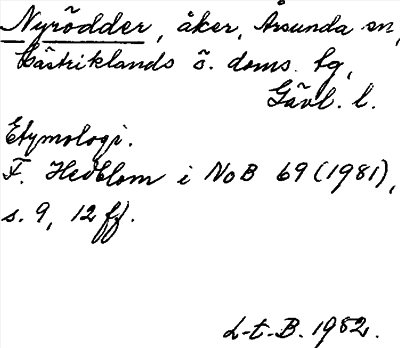 Nyrödder, åker, Årsunda sn,
Gästriklands ö. doms. tg,
Gävl. l.
Etymologi.
F. Hedblom i NoB 69 (1981),
s. 9, 12 ff.
L-t-B. 1982.